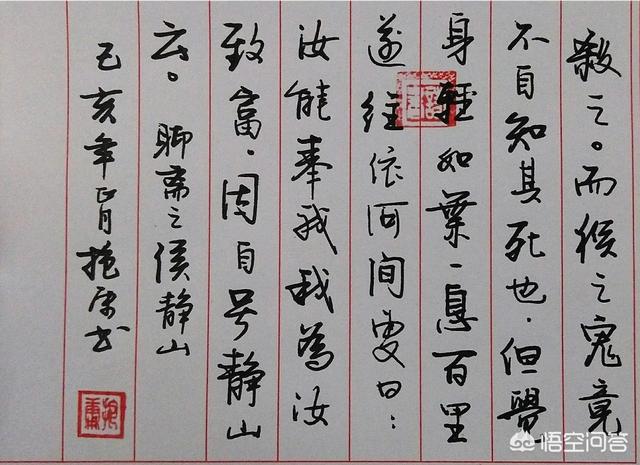 殺之。而猴之鬼竟
不自知其死也.但覺
身輕如葉一息百里
遂往依河间叟曰：
汝能奉我我為汝
致富.因自号静山
云。聊斋之侯静山
己亥年正月书
悟空问答